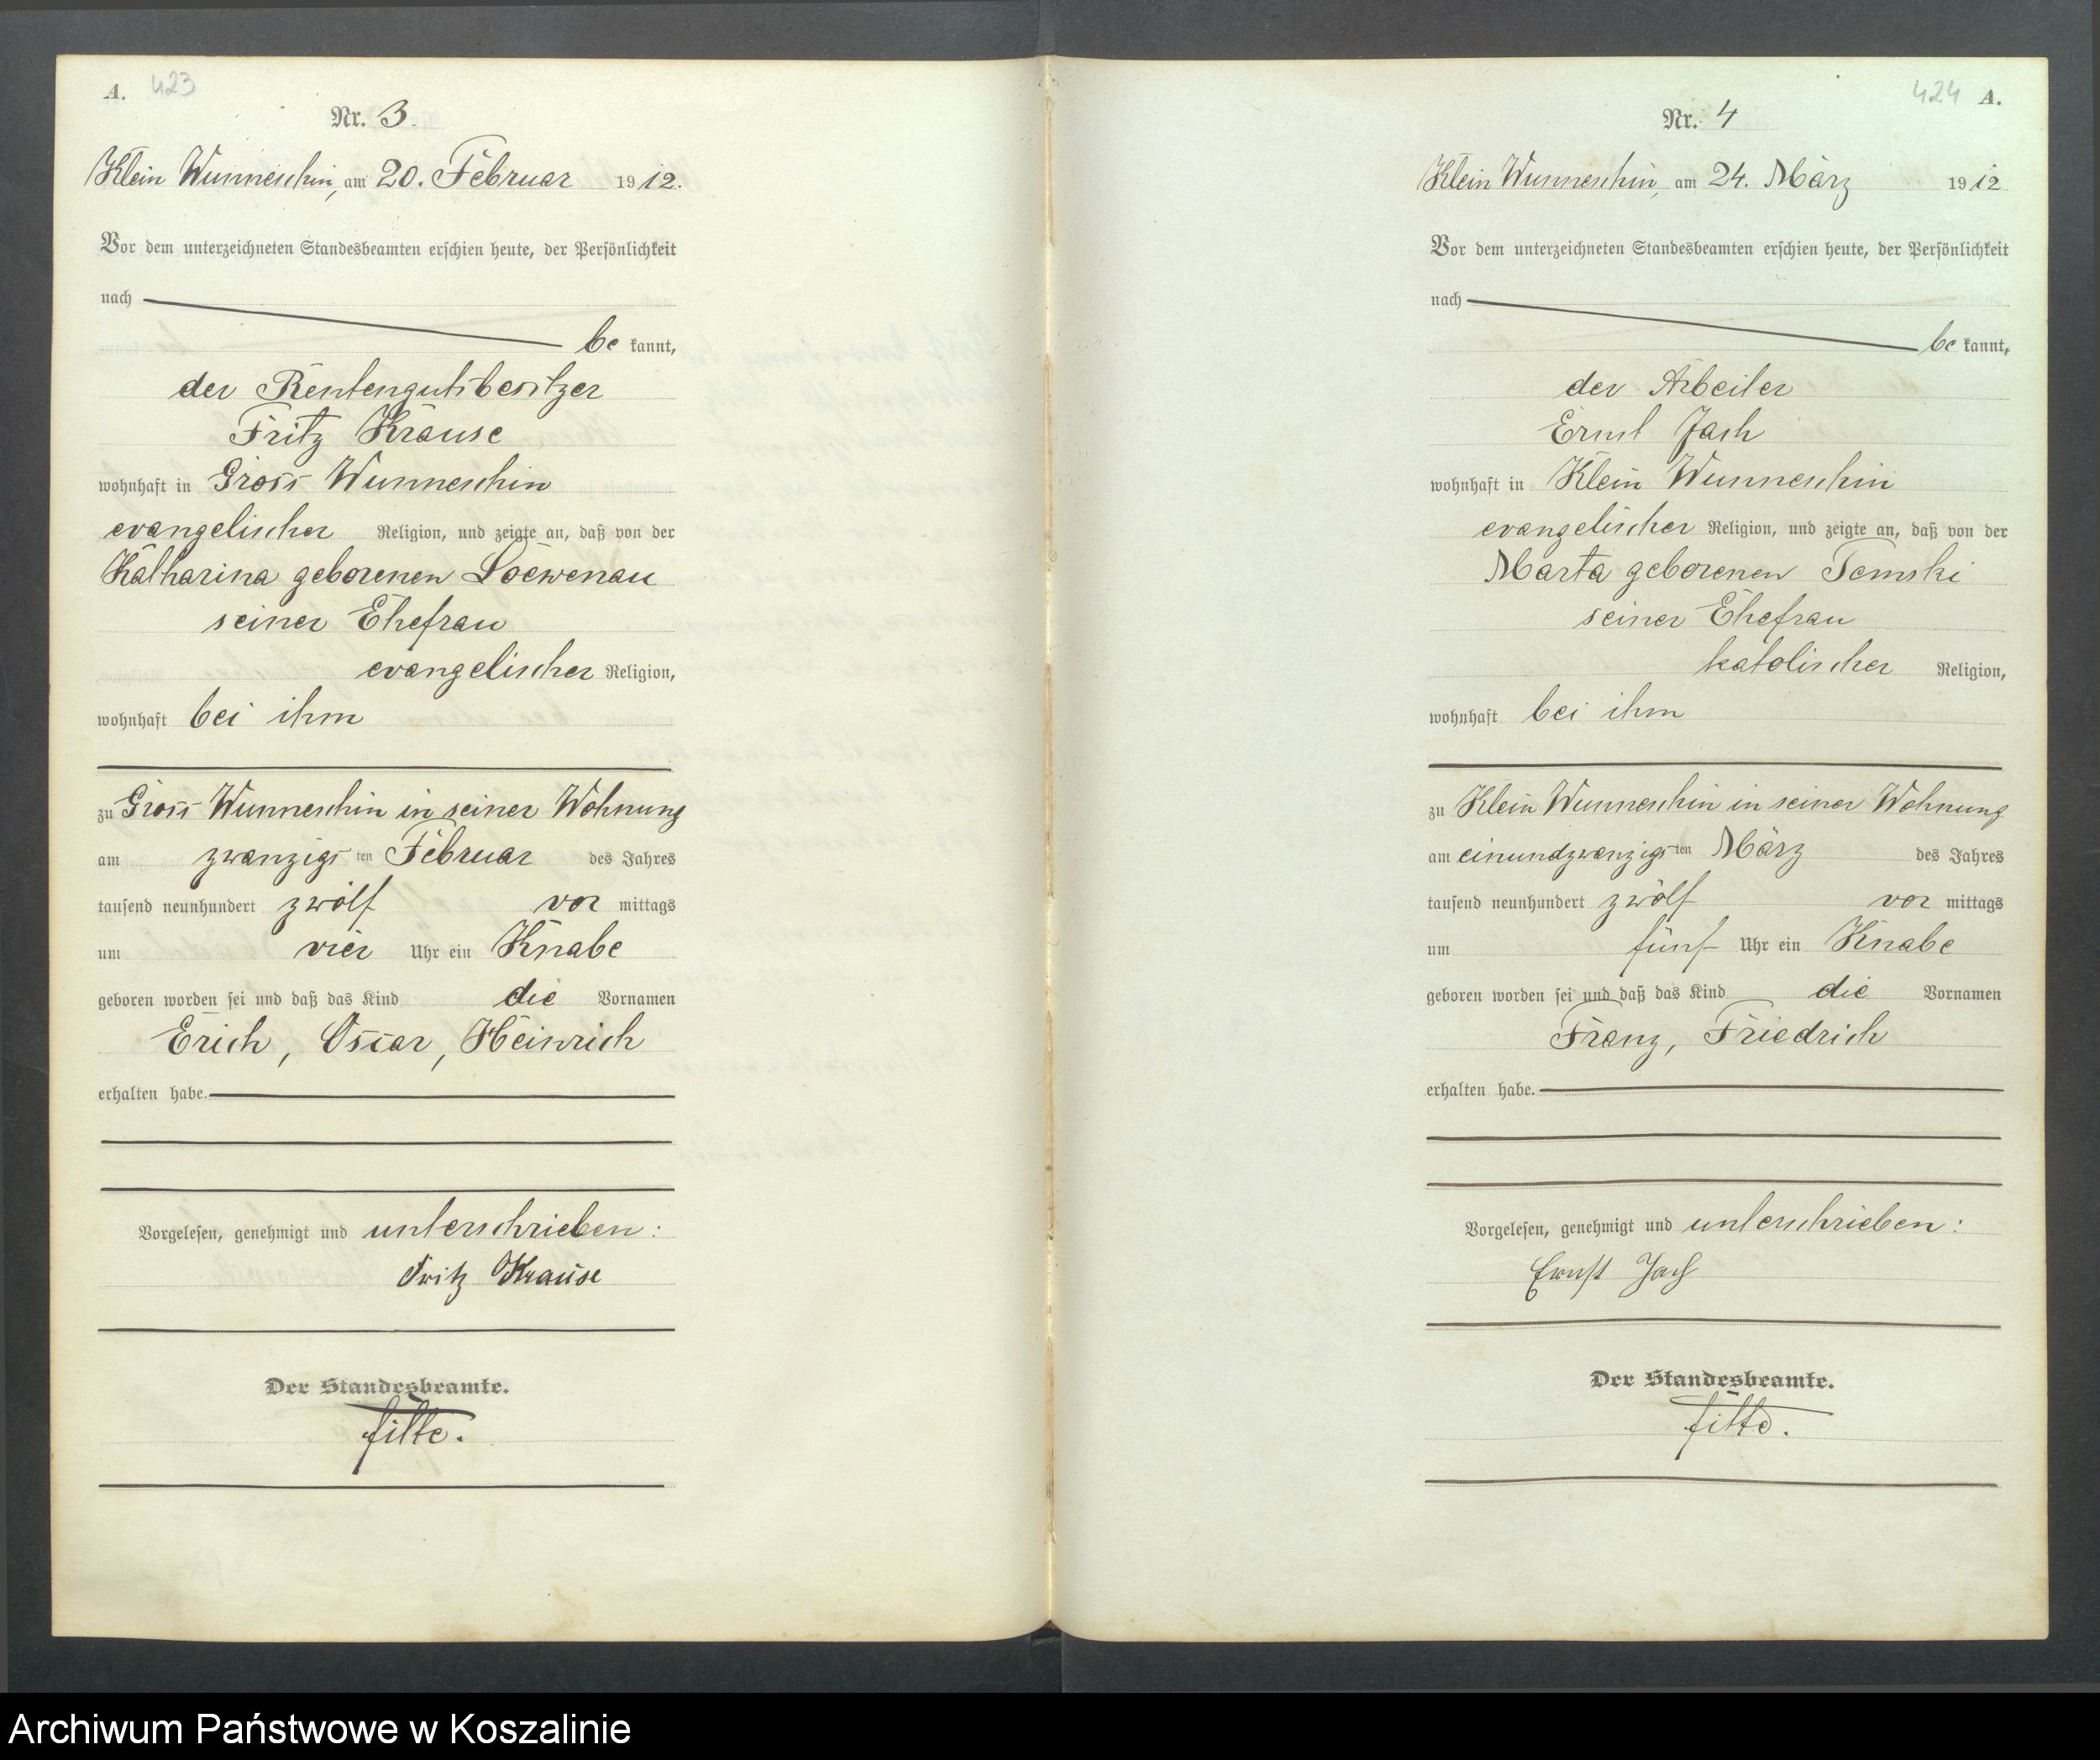 A. 423
Nr. 3.
Klein Wunneschin, am 20. Februar 1912.
Vor dem unterzeichneten Standesbeamten erschien heute, der Persönlichkeit
nach
be kannt,
der Rentengutsbesitzer
Fritz Krause
wohnhaft in Gross Wunneschin
evangelischer Religion, und zeigte an, daß von der
Katharina geborenen Loewenau
seiner Ehefrau
evangelischer Religion,
wohnhaft bei ihm
zu Gross Wunneschin in seiner Wohnung
am zwanzigsten Februar des Jahres
tausend neunhundert zwölf vor mittags
um vier Uhr ein Knabe
geboren worden sei und daß das Kind die Vornamen
Erich, Oscar, Heinrich
erhalten habe.
Vorgelesen, genehmigt und unterschrieben:
Fritz Krause
Der Standesbeamte.
Fitte.
424 A.
Nr. 4
Klein Wunneschin, am 24. März 1912
Vor dem unterzeichneten Standesbeamten erschien heute, der Persönlichkeit
nach
be kannt,
der Arbeiter
Ernst Jach
wohnhaft in Klein Wunneschin
evangelischer Religion, und zeigte an, daß von der
Marta geborenen Temski
seiner Ehefrau
katolischer Religion,
wohnhaft bei ihm
zu Klein Wunneschin in seiner Wohnung
am einundzwanzigsten März des Jahres
tausend neunhundert zwölf vor mittags
um fünf Uhr ein Knabe
geboren worden sei und daß das Kind die Vornamen
Franz, Friedrich
erhalten habe.
Vorgelesen, genehmigt und unterschrieben:
Ernst Jach
Der Standesbeamte.
Fitte.
Archiwum Państwowe w Koszalinie